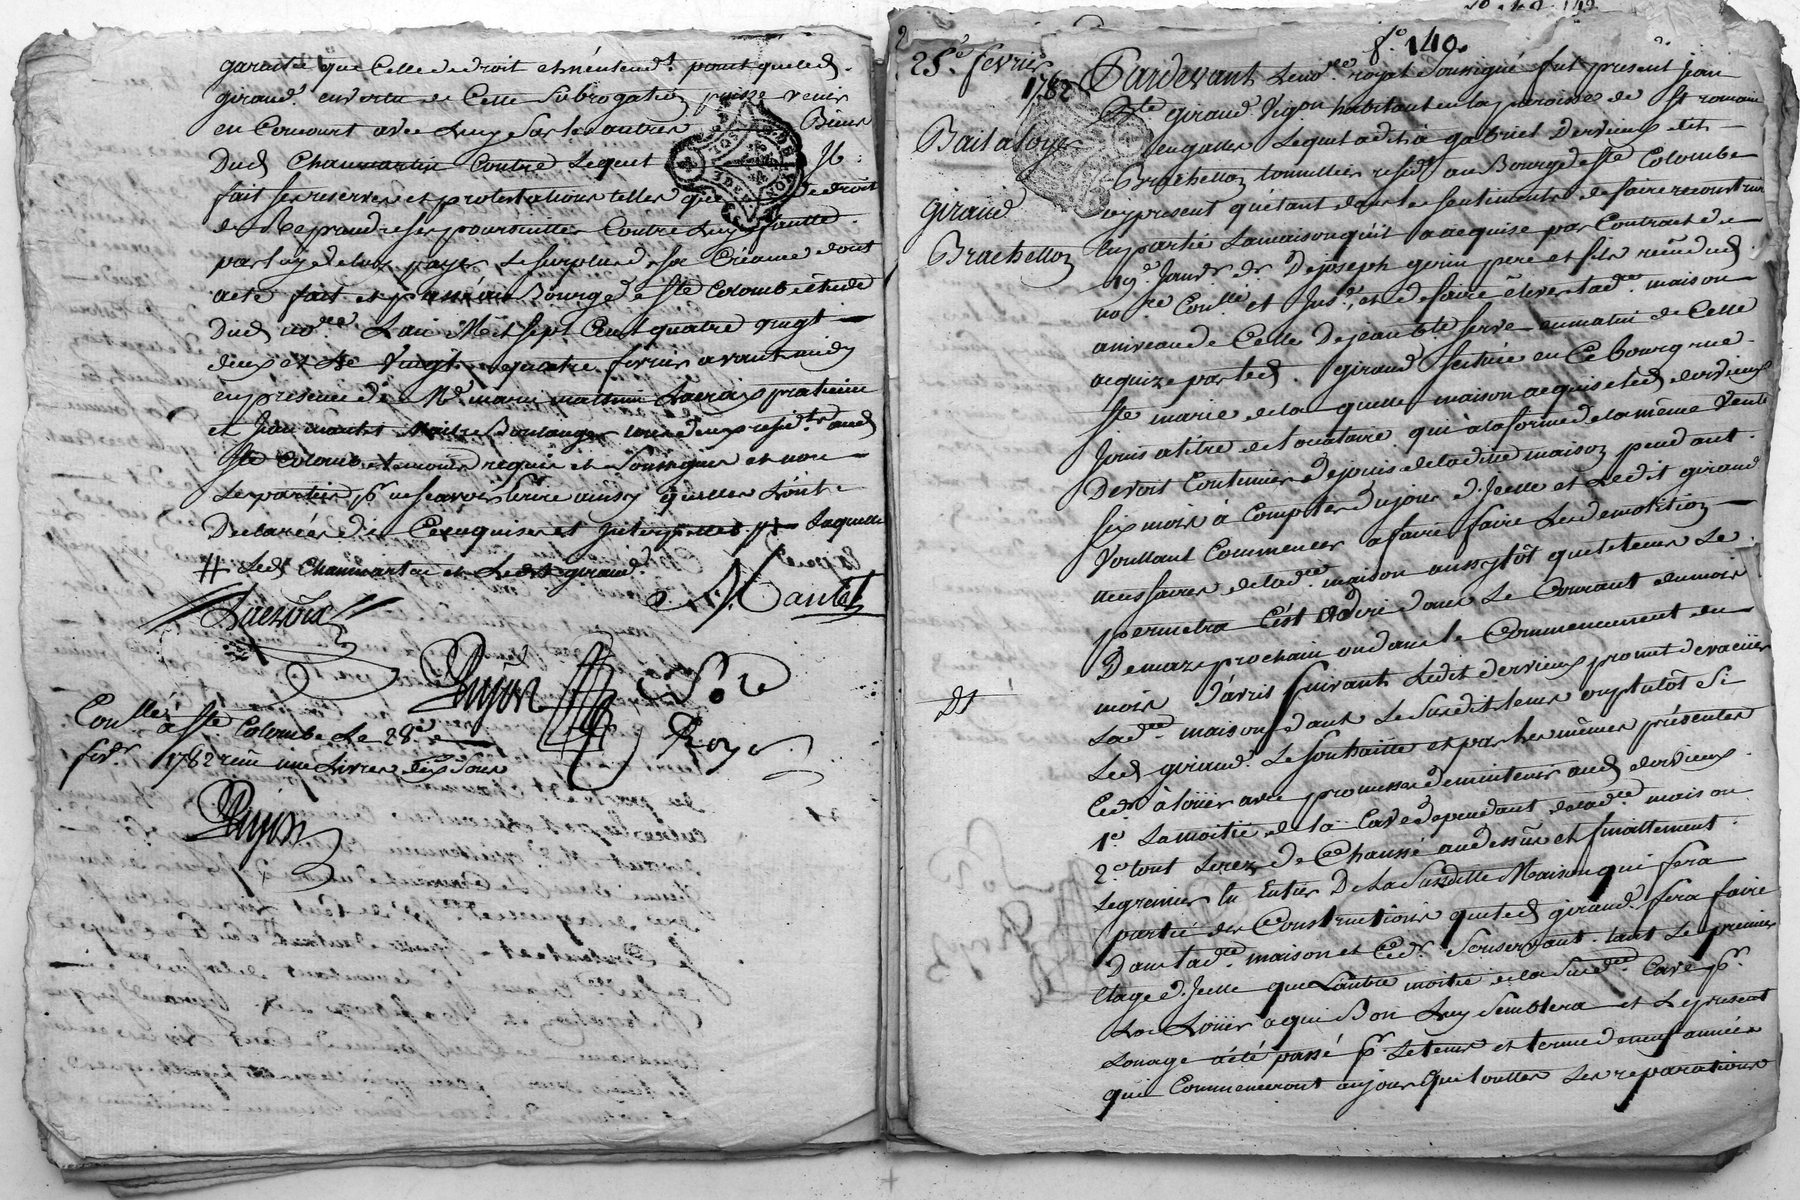 garantie que celle de droit et n'entend.t point que led.
giraud. en vertu de Cette Subrogation puisse venir
en Concours avec Luy Sur les autres Biens
Dud Chaumartin Contre Lequel Il
fait ses reserves et protestations telles que de droit
de Reprandre ses poursuittes Contre Luy faulte
par luy de luy payer Le surplus de sa Créance dont
acte fait et passé au Bourg de Ste Colombe étude
Dud no.re L'an Mil sept Cent quatre vingt
deux et Le Vingt quatre fevrier avant midy
en presence de Me Lacroix praticien
et Boulanger tous deux resid.ts aud
Ste Colombe temoins requis et Soussignés et non
Les parties p.r ne scavoir Ecrire ainsy qu'elles L'ont
Declarées de Ce enquises et Interpellées
# Led Chaumartin et Led giraud.
Lacroix
Mantel
Dujon
No.re
Royal
Con.llé à Ste Colombe Le 28e
fev.r 1782 reçu une Livre dix Sous
Dujon
f.o 140.
25.e fevrier
1782
Bail a loyer
giraud
Brachellon
Pardevant Le no.re royal Soussigné fut présent Jean
B.te giraud Vig.on habitant en la paroisse de St romain
en galles Lequel a dit à gabriel Dervieux dit
Brachellon tonnellier resid.t au Bourg de Ste Colombe
icy present qu'étant dans le sentiment de faire reconstruire
En partie La maison qu'il a acquise par Contract de
19.e Janv.r der de joseph gorin pere et fils reçu dud
no.re Con.llé et Ins.é, et de faire élever lad. maison
au niveau de Celle De jean B.te serve au matin de Celle
acquize par led. giraud scituée en Ce bourg rue
Ste marie de la quelle maison acquise led dervieux
Jouis a titre de Locataire qui a la forme de la même Vente
Devoit Continuer de jouir de ladite maison pendant
six mois à Compter du jour d'Icelle et Ledit giraud
Voullant Commencer a faire faire Les demolition
necessaires de lad.e maison aussytôt que le tems Le
permettra C'est adire dans Le Courant du mois
De mars prochain ou dans le Commencement du
mois d'avril suivant Ledit dervieux promet d'evacüer
Lad.e maison dans Le susdit tems ou plutôt Si
Led giraud. Le Souhaitte et par les mêmes présentes
Cedr à loüer avec promesse de maintenir aud dervieux
1.o La moitié de la Cave dependant de lad.e maison
2.o tout Lerez de Chaussé au dessus et finallement
Le grenier En Entier De La Susditte Maison qui fera
partie des Constructions que led giraud. fera faire
Dans lad.e maison et Cedr. Se reservant tant Le premier
Etage d'Icelle que L'autre moitié de la Sus.de Cave p.r
Les Loüer a qui Bon Luy Semblera et Le present
Louage a été passé p.r Le tems et terme de neuf année
qui Commenceront au jour que toutes Les reparations